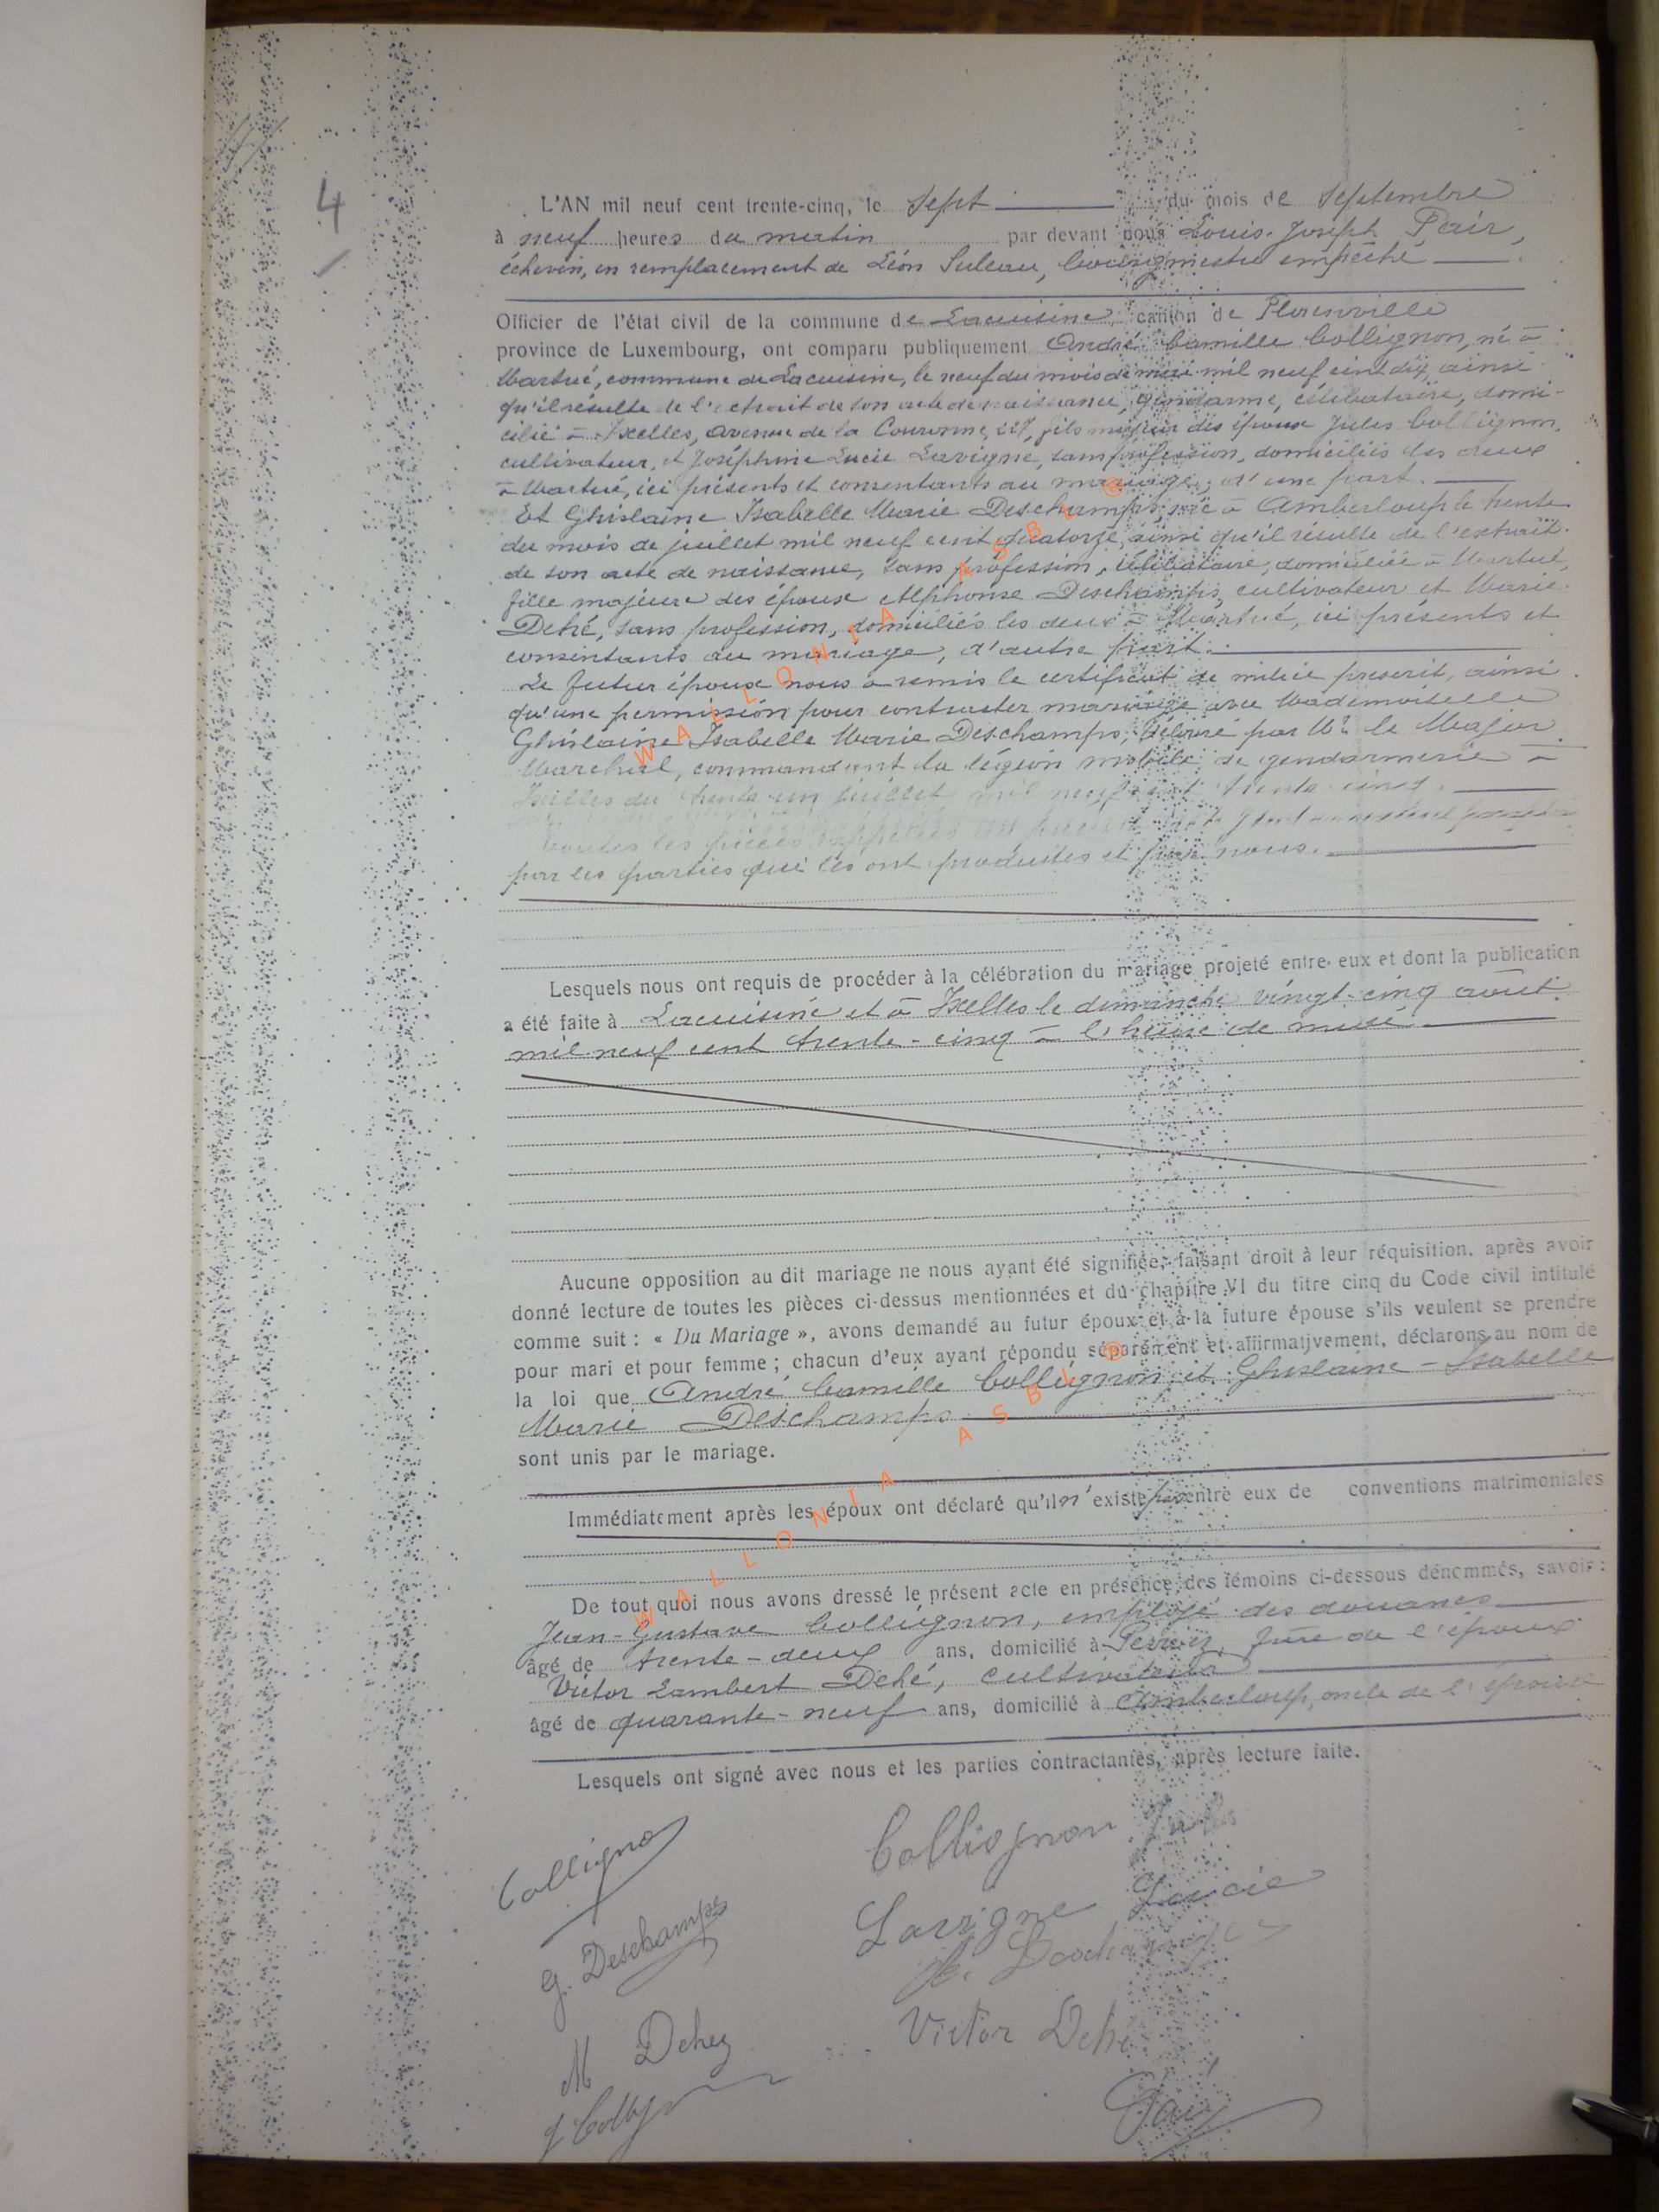 4
L'AN mil neuf cent trente-cinq, le sept du mois de septembre
à neuf heures du matin par devant nous Louis-Joseph Pair,
échevin, en remplacement de Léon Suleau, bourgmestre empêché
Officier de l'état civil de la commune de Lacuisine, canton de Florenville
province de Luxembourg, ont comparu publiquement André Camille Collignon, né à
Martué, commune de Lacuisine, le neuf du mois de mai mil neuf cent dix, ainsi
qu'il résulte de l'extrait de son acte de naissance, gendarme, célibataire, domi-
cilié à Ixelles, Avenue de la Couronne, 227, fils majeur des époux Jules Collignon,
cultivateur, et Joséphine Lucie Lavigne, sans profession, domiciliés les deux
à Martué, ici présents et consentants au mariage, d'une part.
Et Ghislaine Isabelle Marie Deschamps, née à Amberloup le trente
du mois de juillet mil neuf cent quatorze, ainsi qu'il résulte de l'extrait
de son acte de naissance, sans profession, célibataire, domiciliée à Martué,
fille majeure des époux Alphonse Deschamps, cultivateur et Marie
Dehé, sans profession, domiciliés les deux à Martué, ici présents et
consentants au mariage, d'autre part.
Le futur époux nous a remis le certificat de milice prescrit, ainsi
qu'une permission pour contracter mariage avec Mademoiselle
Ghislaine Isabelle Marie Deschamps, délivré par Mr le Major
Marchal, commandant la légion mobile de gendarmerie à
Ixelles du trente-un juillet mil neuf cent trente-cinq.
Toutes les pièces rappelées au présent acte
par les parties qui les ont produites et par nous.
Lesquels nous ont requis de procéder à la célébration du mariage projeté entre eux et dont la publication
a été faite à Lacuisine et à Ixelles le dimanche vingt-cinq août
mil neuf cent trente-cinq à l'heure de midi
Aucune opposition au dit mariage ne nous ayant été signifiée, faisant droit à leur réquisition, après avoir
donné lecture de toutes les pièces ci-dessus mentionnées et du chapitre VI du titre cinq du Code civil intitulé
comme suit : « Du Mariage », avons demandé au futur époux et à la future épouse s'ils veulent se prendre
pour mari et pour femme ; chacun d'eux ayant répondu séparément et affirmativement, déclarons au nom de
la loi que André Camille Collignon et Ghislaine-Isabelle
Marie Deschamps
sont unis par le mariage.
Immédiatement après les époux ont déclaré qu'il n'existe pas entre eux de conventions matrimoniales
De tout quoi nous avons dressé le présent acte en présence des témoins ci-dessous dénommés, savoir :
Jean-Gustave Collignon, employé des douanes
âgé de trente-deux ans, domicilié à Perwez, frère de l'époux
Victor Lambert Dehé, cultivateur
âgé de quarante-neuf ans, domicilié à Amberloup, oncle de l'épouse
Lesquels ont signé avec nous et les parties contractantes, après lecture faite.
Collignon
Collignon Jules
G. Deschamps
Lavigne Lucie
A. Deschamps
M Dehez
Victor Dehé
J Collign
Pair
WALLONIA ASBL ®
WALLONIA ASBL ®